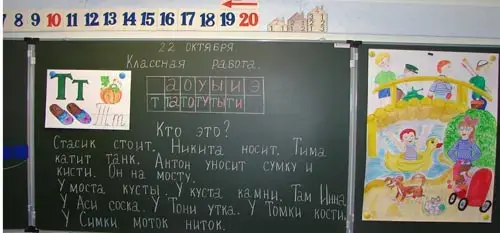 7 8 9 10 11 12 13 14 15 16 17 18 19 20
22 октября
Классная работа.
Тт
Тт
а о у ы и э
т та то ту ты ти
Кто это?
Стасик стоит. Никита носит. Тима
катит танк. Антон уносит сумку и
кисти. Он на мосту.
У моста кусты. У куста камни. Там Инна.
У Аси соска. У Тони утка. У Томки кости.
У Симки моток ниток.